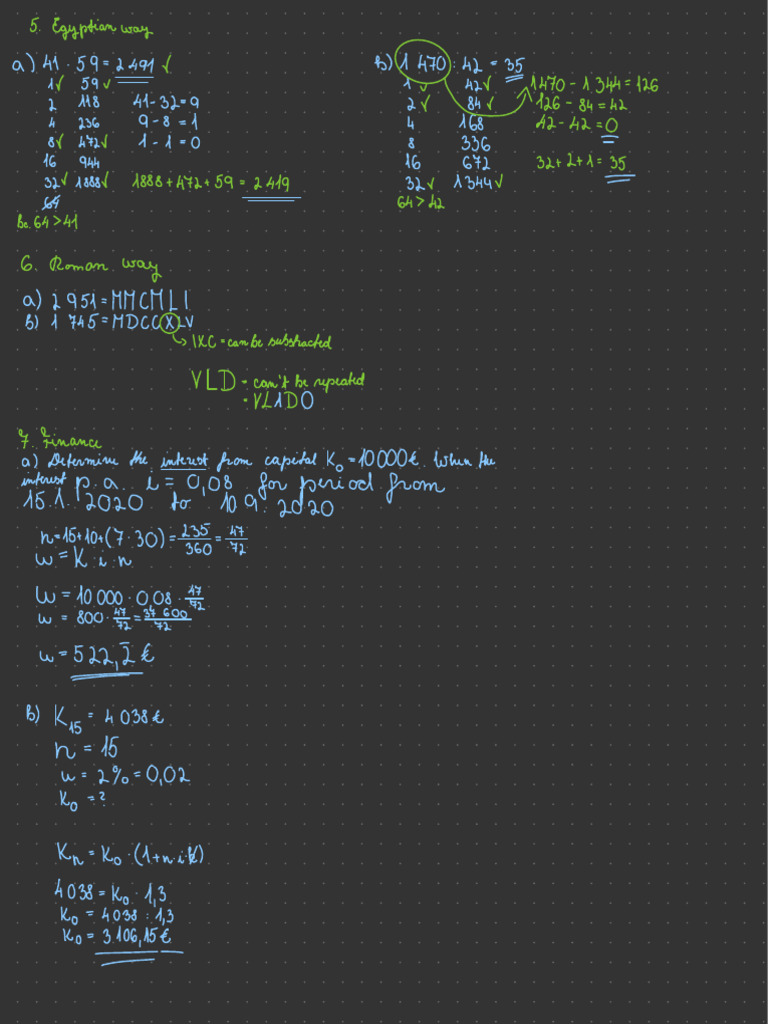 5. Egyptian way
a) 41 · 59 = 2 491 ✓
1 ✓ 59 ✓
2 118 41-32=9
4 236 9-8=1
8 ✓ 472 ✓ 1-1=0
16 944
32 ✓ 1888 ✓ 1888+472+59=2 419
64
bc. 64>41
b) 1 470 : 42 = 35
1 ✓ 42 ✓ 1470-1 344=126
2 ✓ 84 ✓ 126-84=42
4 168 42-42=0
8 336
16 672 32+2+1=35
32 ✓ 1344 ✓
64>42
6. Roman way
a) 2 951=MMCMLI
b) 1 745=MDCCXLV
IXC=can be substracted
VLD - can't be repeated
- VL1DO
7. Finance
a) Determine the interest from capital K₀=10000€. When the
interest p.a. i = 0,08 for period from
15.1. 2020 to 10 9. 2020
n=15+10+(7·30)=235/360=47/72
u=K·i·n
u=10 000·0,08·47/72
u=800·47/72=37 600/72
u=522,2̅€
b) K₁₅=4 038€
n=15
u=2%=0,02
K₀=?
Kₙ=K₀·(1+n·i)
4 038=K₀·1,3
K₀=4038:1,3
K₀=3.106,15€